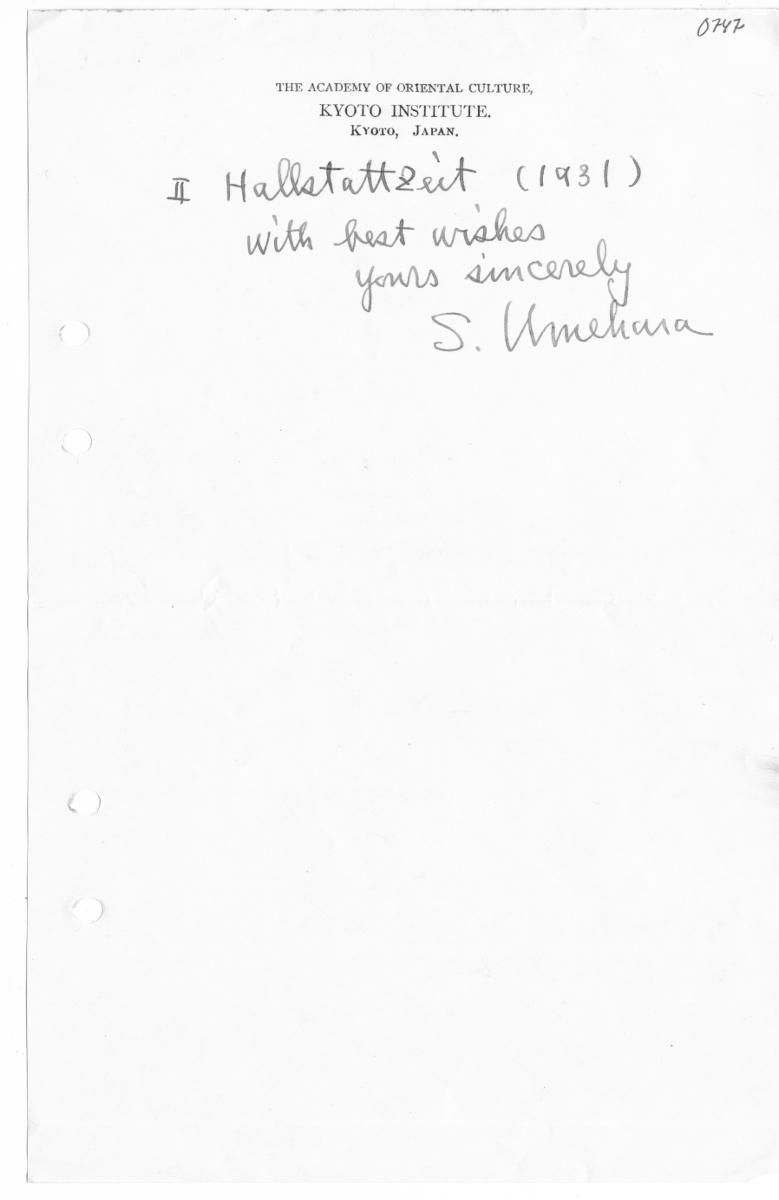 0747
THE ACADEMY OF ORIENTAL CULTURE,
KYOTO INSTITUTE.
KYOTO, JAPAN.
II Hallstattzeit (1931)
with best wishes
yours sincerely
S. Umehara